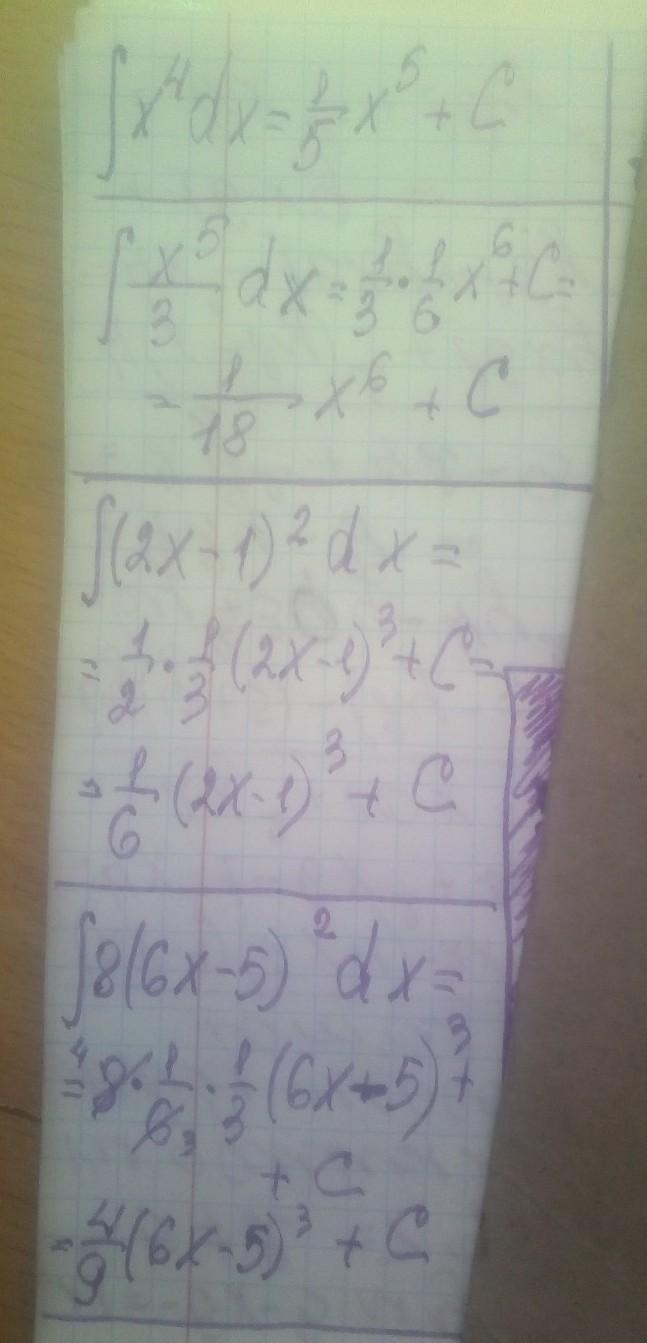 ∫x⁴dx = 1/5 x⁵ + C
∫x⁵/3 dx = 1/3 · 1/6 x⁶ + C =
= 1/18 x⁶ + C
∫(2x - 1)² dx =
= 1/2 · 1/3 (2x - 1)³ + C =
= 1/6 (2x - 1)³ + C
∫8(6x - 5)² dx =
= 8 4 · 1/6 3 · 1/3 (6x - 5)³ +
+ C
= 4/9 (6x - 5)³ + C